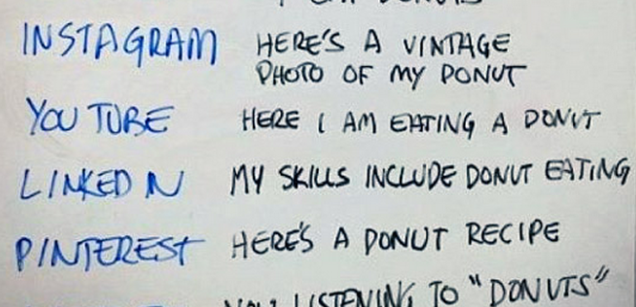 INSTAGRAM HERE'S A VINTAGE
PHOTO OF MY DONUT
YOU TUBE HERE I AM EATING A DONUT
LINKED IN MY SKILLS INCLUDE DONUT EATING
PINTEREST HERE'S A DONUT RECIPE
LISTENING TO "DONUTS"